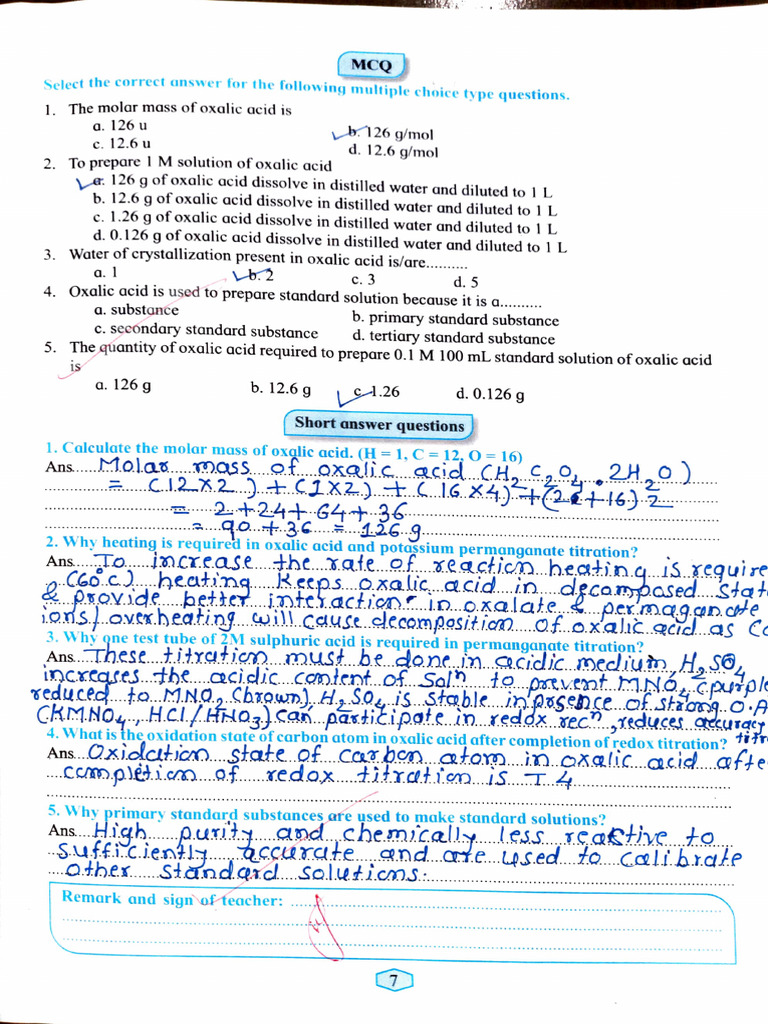 MCQ
Select the correct answer for the following multiple choice type questions.
1. The molar mass of oxalic acid is
a. 126 u b. 126 g/mol
c. 12.6 u d. 12.6 g/mol
2. To prepare 1 M solution of oxalic acid
a. 126 g of oxalic acid dissolve in distilled water and diluted to 1 L
b. 12.6 g of oxalic acid dissolve in distilled water and diluted to 1 L
c. 1.26 g of oxalic acid dissolve in distilled water and diluted to 1 L
d. 0.126 g of oxalic acid dissolve in distilled water and diluted to 1 L
3. Water of crystallization present in oxalic acid is/are..........
a. 1 b. 2 c. 3 d. 5
4. Oxalic acid is used to prepare standard solution because it is a..........
a. substance b. primary standard substance
c. secondary standard substance d. tertiary standard substance
5. The quantity of oxalic acid required to prepare 0.1 M 100 mL standard solution of oxalic acid
is
a. 126 g b. 12.6 g c. 1.26 d. 0.126 g
Short answer questions
1. Calculate the molar mass of oxalic acid. (H = 1, C = 12, O = 16)
Ans. Molar mass of oxalic acid (H2C2O4.2H2O)
= (12×2) + (1×2) + (16×4) + (2+16).2
= 2+24+64+36
= 90+36 = 126 g
2. Why heating is required in oxalic acid and potassium permanganate titration?
Ans. To increase the rate of reaction heating is require
(60°C) heating keeps oxalic acid in decomposed stat
& provide better interaction in oxalate & permaganate
ions/overheating will cause decomposition of oxalic acid as
3. Why one test tube of 2M sulphuric acid is required in permanganate titration?
Ans. These titration must be done in acidic medium, H2SO4
increases the acidic content of soln to prevent MNO4 (purple
reduced to MNO2 (brown). H2SO4 is stable in prsence of strong O.A
(KMNO4, HCl/HNO3) can participate in redox recn, reduces accuracy
titr
4. What is the oxidation state of carbon atom in oxalic acid after completion of redox titration?
Ans. Oxidation state of carbon atom in oxalic acid afte
completion of redox titration is + 4
5. Why primary standard substances are used to make standard solutions?
Ans. High purity and chemically less reactive to
sufficiently accurate and are used to calibrate
other standard solutions.
Remark and sign of teacher:
7